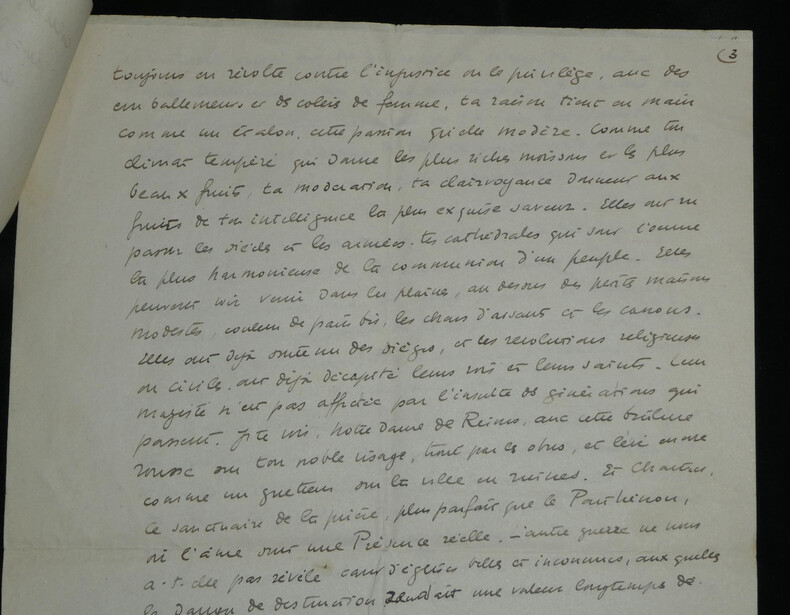 3
toujours en révolte contre l'injustice ou le privilège, avec des
emballements et ds colères de femme, ta raison tient en main
comme un étalon, cette passion qu'elle modère. Comme un
climat tempéré qui donne les plus riches moissons et les plus
beaux fruits, ta modération, ta clairvoyance donnent aux
fruits de ton intelligence la plus exquise saveur. Elles ont vu
passer les siècles et les armées. tes cathédrales qui sont l'œuvre
la plus harmonieuse de la communion d'un peuple. Elles
peuvent voir venir dans les plaines, au dessus des petites maisons
modestes, couleur de pain bis, les chars d'assaut et les canons.
Elles ont déjà soutenu des sièges, et les révolutions religieuses
ou civiles. ont déjà décapité leurs rois et leurs saints. Leur
majesté n'est pas affectée par l'insulte ds générations qui
passent. Je te vois, Notre Dame de Reims, avec cette brûlure
rousse sur ton noble visage, par les obus, et encore
comme un guetteur sur la ville en ruines. Et Chartres,
le sanctuaire de la prière, plus parfait que le Parthénon,
où l'âme sent une Présence réelle. L'autre guerre ne nous
a-t-elle pas révélé tant d'églises belles et inconnues, auxquelles
la de destruction rendait une valeur longtemps de